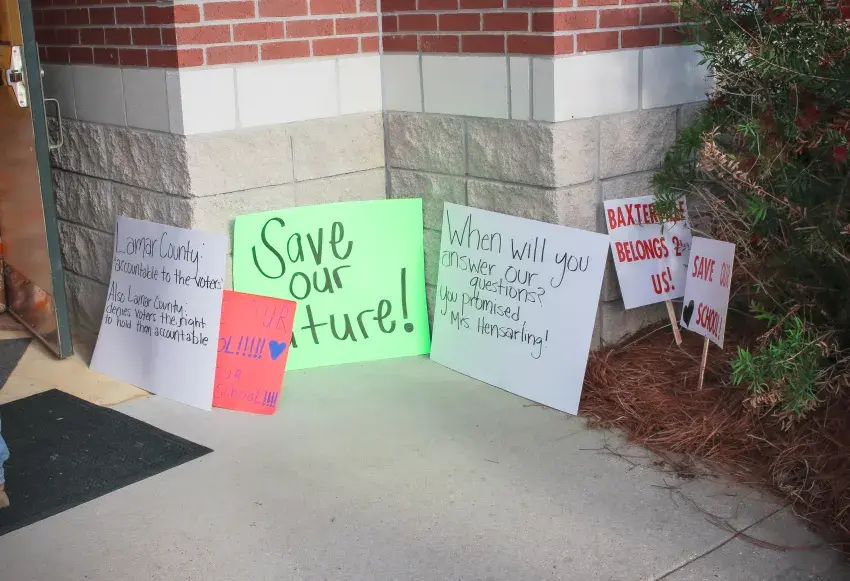 Lamar County:
"accountable to the voters"
Also Lamar County:
denies voters the right
to hold them accountable
UR
OL!!!!!
UR
SCHOOL!!!!
Save
our
ture!
When will you
answer our
questions?
you promised
Mrs. Hensarling!
BAXTER
BELONGS 2
US!
SAVE OUR
SCHOOL!